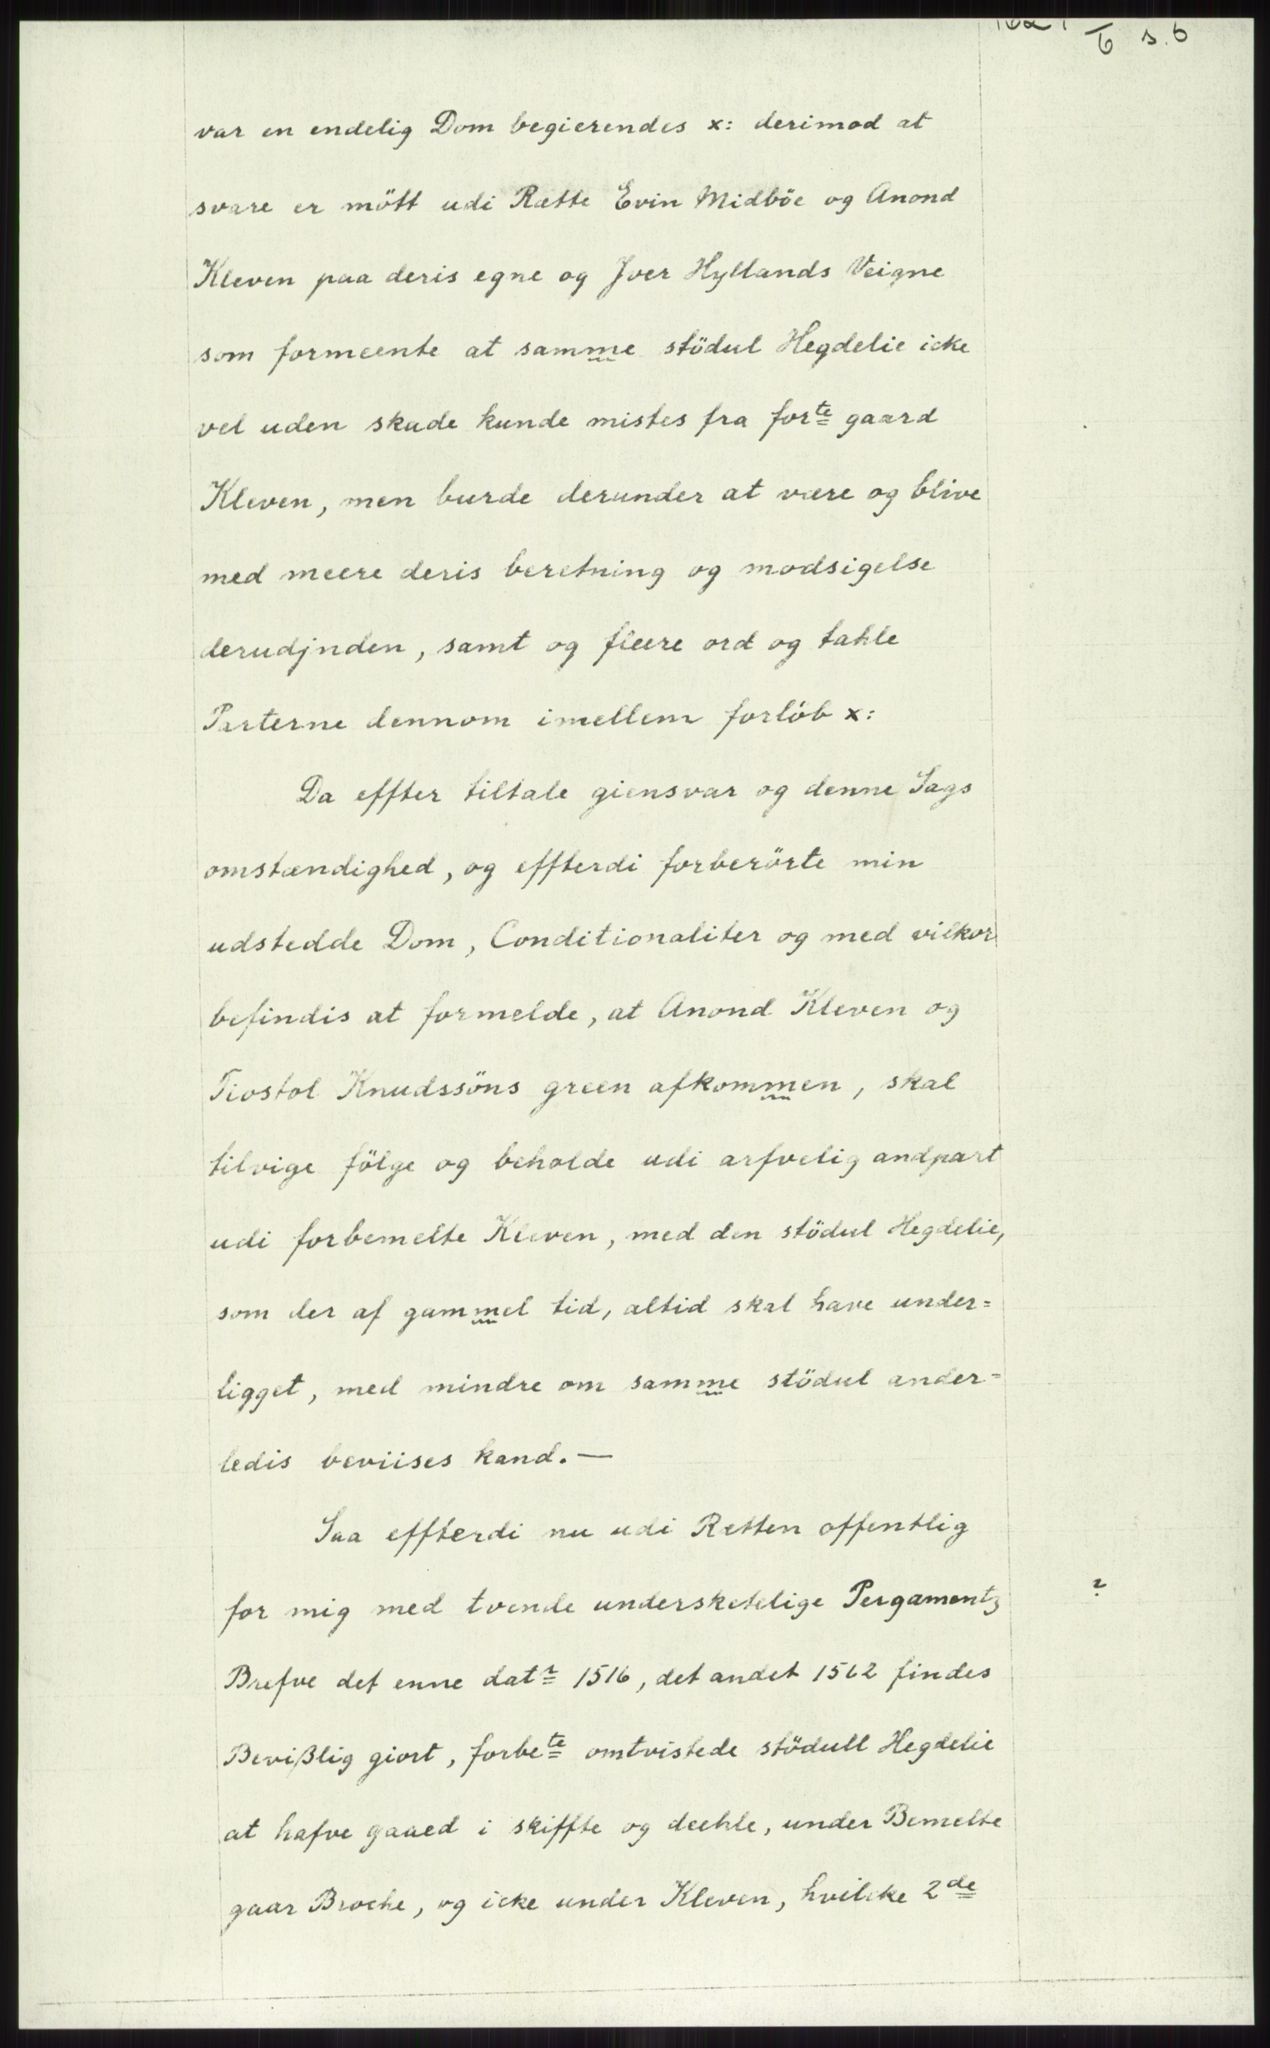 6 s. 6
var en endelig Dom begierendes x: derimod at
svare er mött udi Rætte Evin Midböe og Anond
Kleven paa deris egne og Jver Hyllands Veigne
som formeente at samme stödul Hegdelie icke
vel uden skade kunde mistes fra forte gaard
Kleven, men burde derunder at være og blive
med meere deris beretning og modsigelse
derudjnden, samt og fleere ord og tahle
Parterne dennom imellem forlöb x:
Da effter tiltale giensvar og denne Sags
omstændighed, og effterdi forberörte min
udstedde Dom, Conditionaliter og med vilkor
befindis at formelde, at Anond Kleven og
Tiostol Knudssöns green afkommen, skal
tilvige fölge og beholde udi arfvelig andpart
udi forbemelte Kleven, med den stödul Hegdelie,
som der af gammel tid, altid skal have under=
ligget, med mindre om samme stödul ander=
ledis beviises kand. —
Saa effterdi nu udi Retten offentlig
for mig med tvende underskelige Pergamentz
Brefve det enne datr 1516, det andet 1562 findes
Bevißlig giort, forbete omtvistede stödull Hegdelie
at hafve gaaed i skiffte og deehle, under Bemelte
gaar Broche, og icke under Kleven, hvilcke 2de